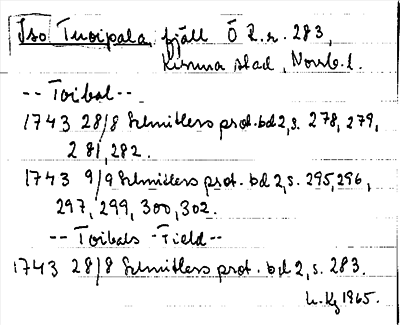 Iso Tuoipala, fjäll Ö R.r. 283,
Kiruna stad, Norrb. l.
-- Toibal --
1743 28/8 Schnitlers prot. bd 2, s. 278, 279,
281, 282.
1743 9/9 Schnitlers prot. bd 2, s. 295, 296,
297, 299, 300, 302.
-- Toibals -Field --
1743 28/8 Schnitlers prot. bd 2, s. 283.
1965.